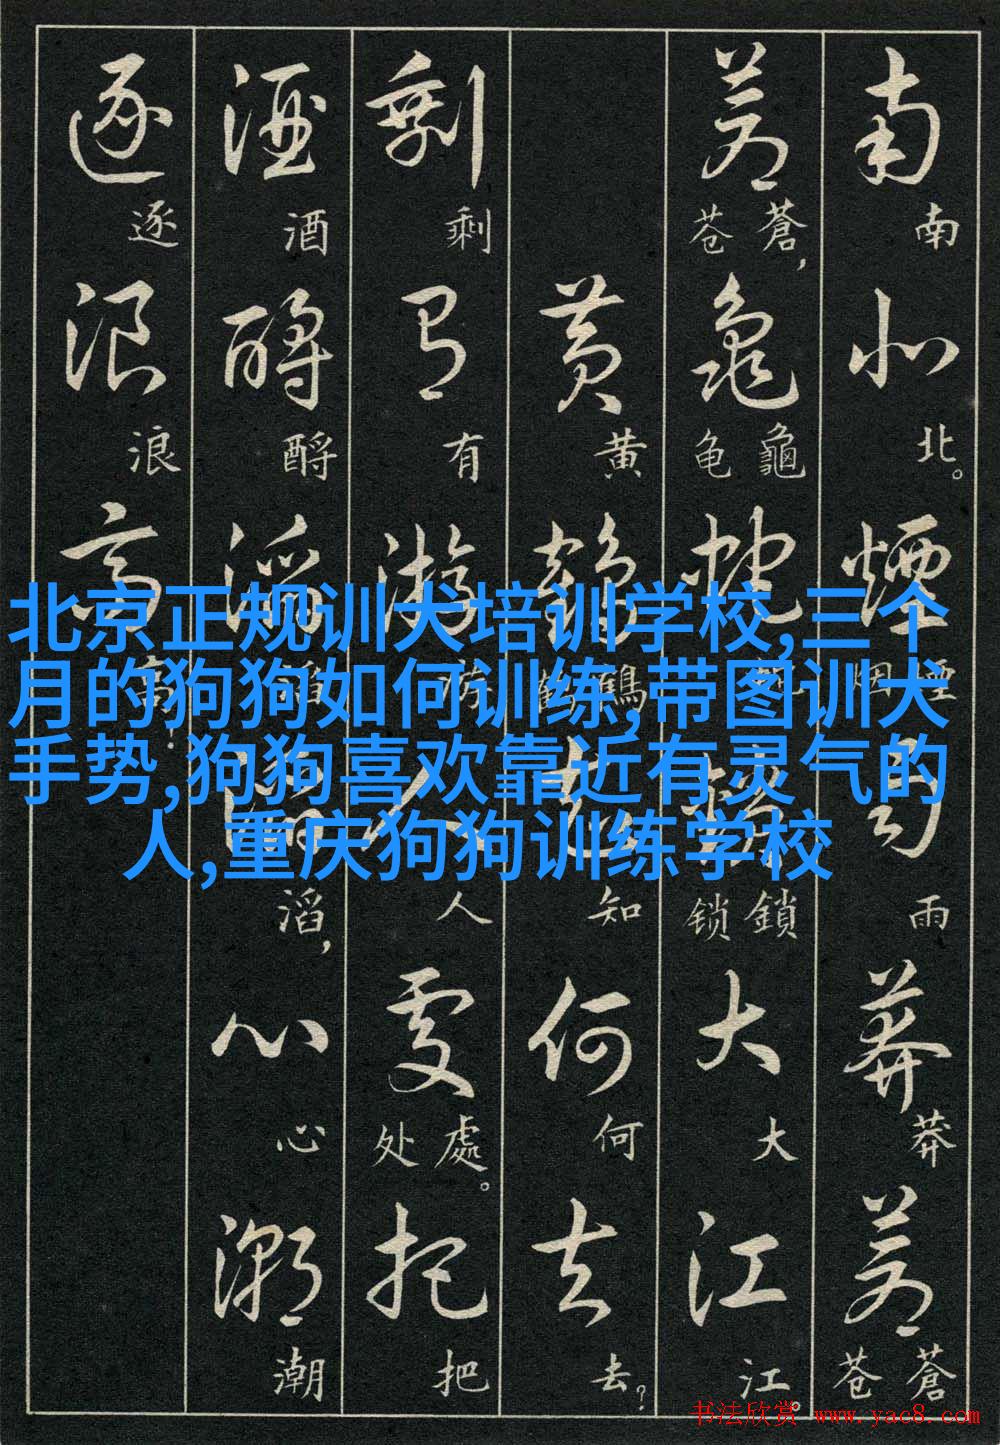 北京正规训犬培训学校,三个
月的狗狗如何训练,带图训犬
手势,狗狗喜欢靠近有灵气的
人,重庆狗狗训练学校
南南北北。煙煙烟雨雨莽莽蒼蒼苍
蒼蒼,苍龜龜龟蛇鎖鎖锁大大江江。
黄黄鶴鶴知知何何去去?
剩剩有有游游人人處處。处把把
酒酒酹酹滔滔滔滔,心心潮潮
逐逐浪浪高高
书法欣赏 www.yac8.com